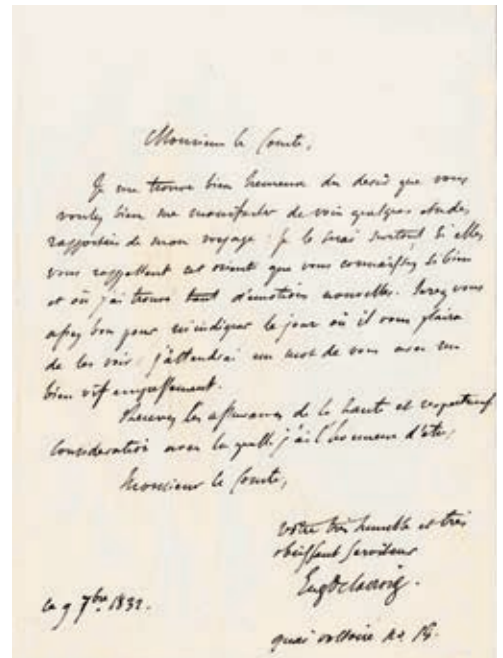 Monsieur le Comte,
Je me trouve bien heureux du desir que vous
voulez bien me manifester de voir quelques etudes
rapportées de mon voyage. Je le serai surtout si elles
vous rappellent cet orient que vous connaissez si bien
et où j'ai trouvé tant d'émotions nouvelles. Serez vous
assez bon pour m'indiquer le jour où il vous plaira
de les voir : j'attendrai un mot de vous avec un
bien vif empressement.
Recevez les assurances de la haute et respectueuse
consideration avec laquelle j'ai l'honneur d'etre,
Monsieur le Comte,
Votre très humble et très
obéissant serviteur
EugDelacroix.
le 9 7bre 1832.
quai voltaire no 15.